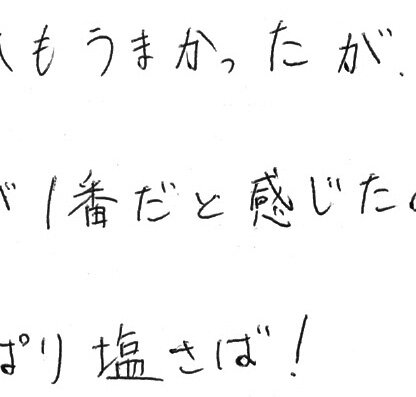 もうまかったが、
が1番だと感じた
ぱり塩さば！